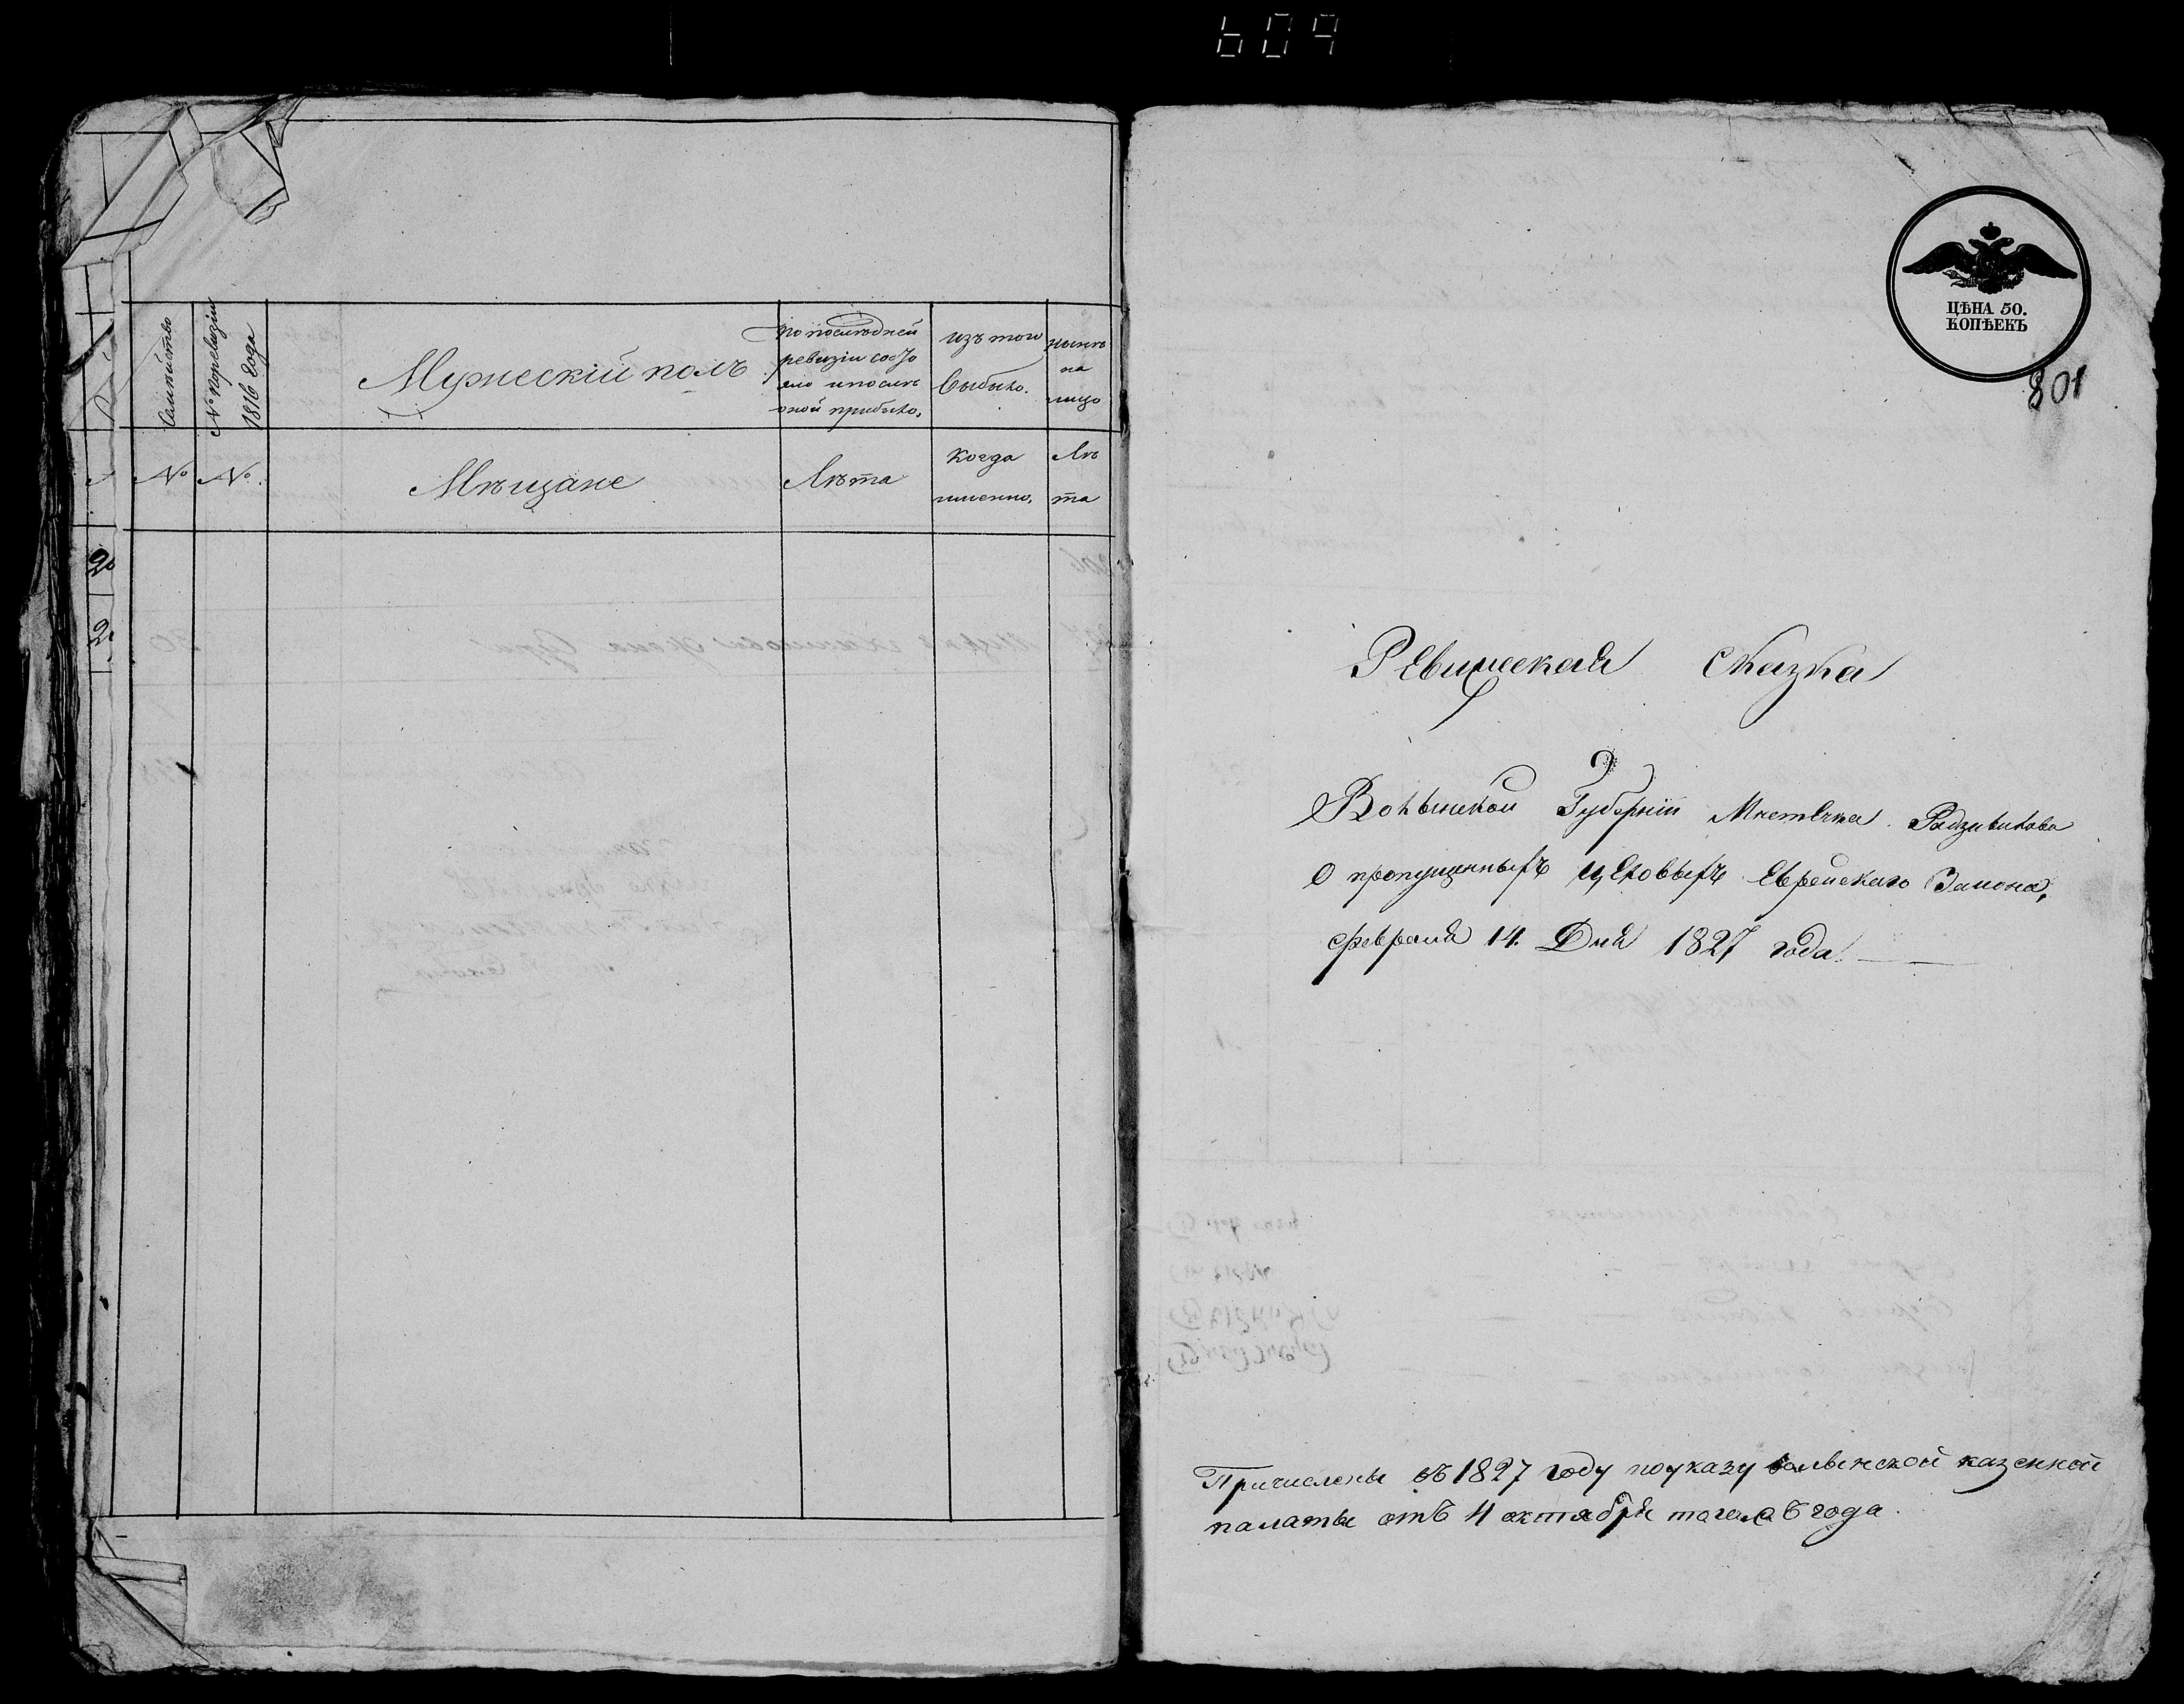 609
Семейство
№ по ревизіи
1816 года
Мужескій полъ
по последней
ревизіи состо
яло и после
оной прибыло,
изъ того
выбыло.
ныне
на
лицо
№
№.
Мѣщане
Лѣта
Когда
именно,
Лѣ
та
2
2
ЦѢНА 50.
КОПѢЕКЪ
801
Ревижская Сказка
Волынской Губерніи Местечка Радзивилова
О пропущенныхъ цеховыхъ Еврейскаго Закона,
февраля 14. Дня 1827 года.
Причислены въ 1827 году по указу волынской казенной
палаты отъ 4 октября того года.